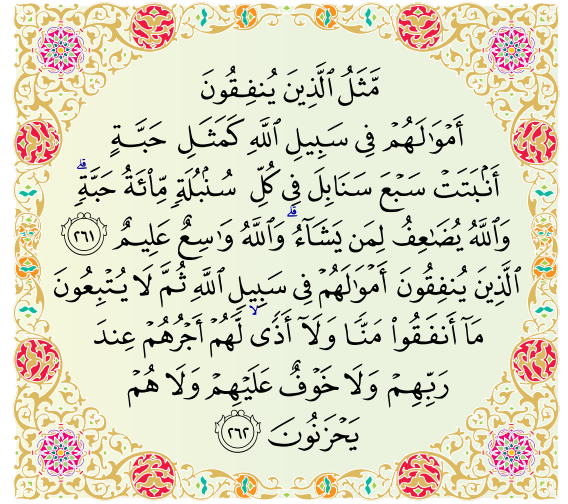 مَّثَلُ ٱلَّذِينَ يُنفِقُونَ
أَمْوَٰلَهُمْ فِى سَبِيلِ ٱللَّهِ كَمَثَلِ حَبَّةٍ
أَنۢبَتَتْ سَبْعَ سَنَابِلَ فِى كُلِّ سُنۢبُلَةٍ مِّا۟ئَةُ حَبَّةٍ ۗ
وَٱللَّهُ يُضَٰعِفُ لِمَن يَشَآءُ ۗ وَٱللَّهُ وَٰسِعٌ عَلِيمٌ ٢٦١
ٱلَّذِينَ يُنفِقُونَ أَمْوَٰلَهُمْ فِى سَبِيلِ ٱللَّهِ ثُمَّ لَا يُتْبِعُونَ
مَآ أَنفَقُوا۟ مَنًّا وَلَآ أَذًى ۙ لَّهُمْ أَجْرُهُمْ عِندَ
رَبِّهِمْ وَلَا خَوْفٌ عَلَيْهِمْ وَلَا هُمْ
يَحْزَنُونَ ٢٦٢